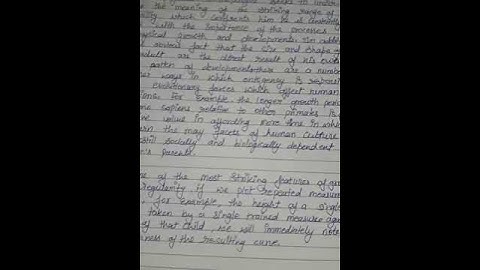 the meaning of the striking range of
which confronts him is constantly
with the importance of the processes
growth and development. In addi
fact that the size and shape of
adult are the direct result of his
patten of development there are a numbe
ways in which ontogeny is
evolutionary forces which affect human
For example, the longer growth peri
sapiens relative to other primates is
value in affording more time in whic
the may facets of human culture
still socially and biologically dependent
parents.
of the most striking features of gro
regularity. If we plot repeated measure
, for example, the height of a singl
taken by a single trained measure aga
of that child, we will immediately note
of the resulting curve.